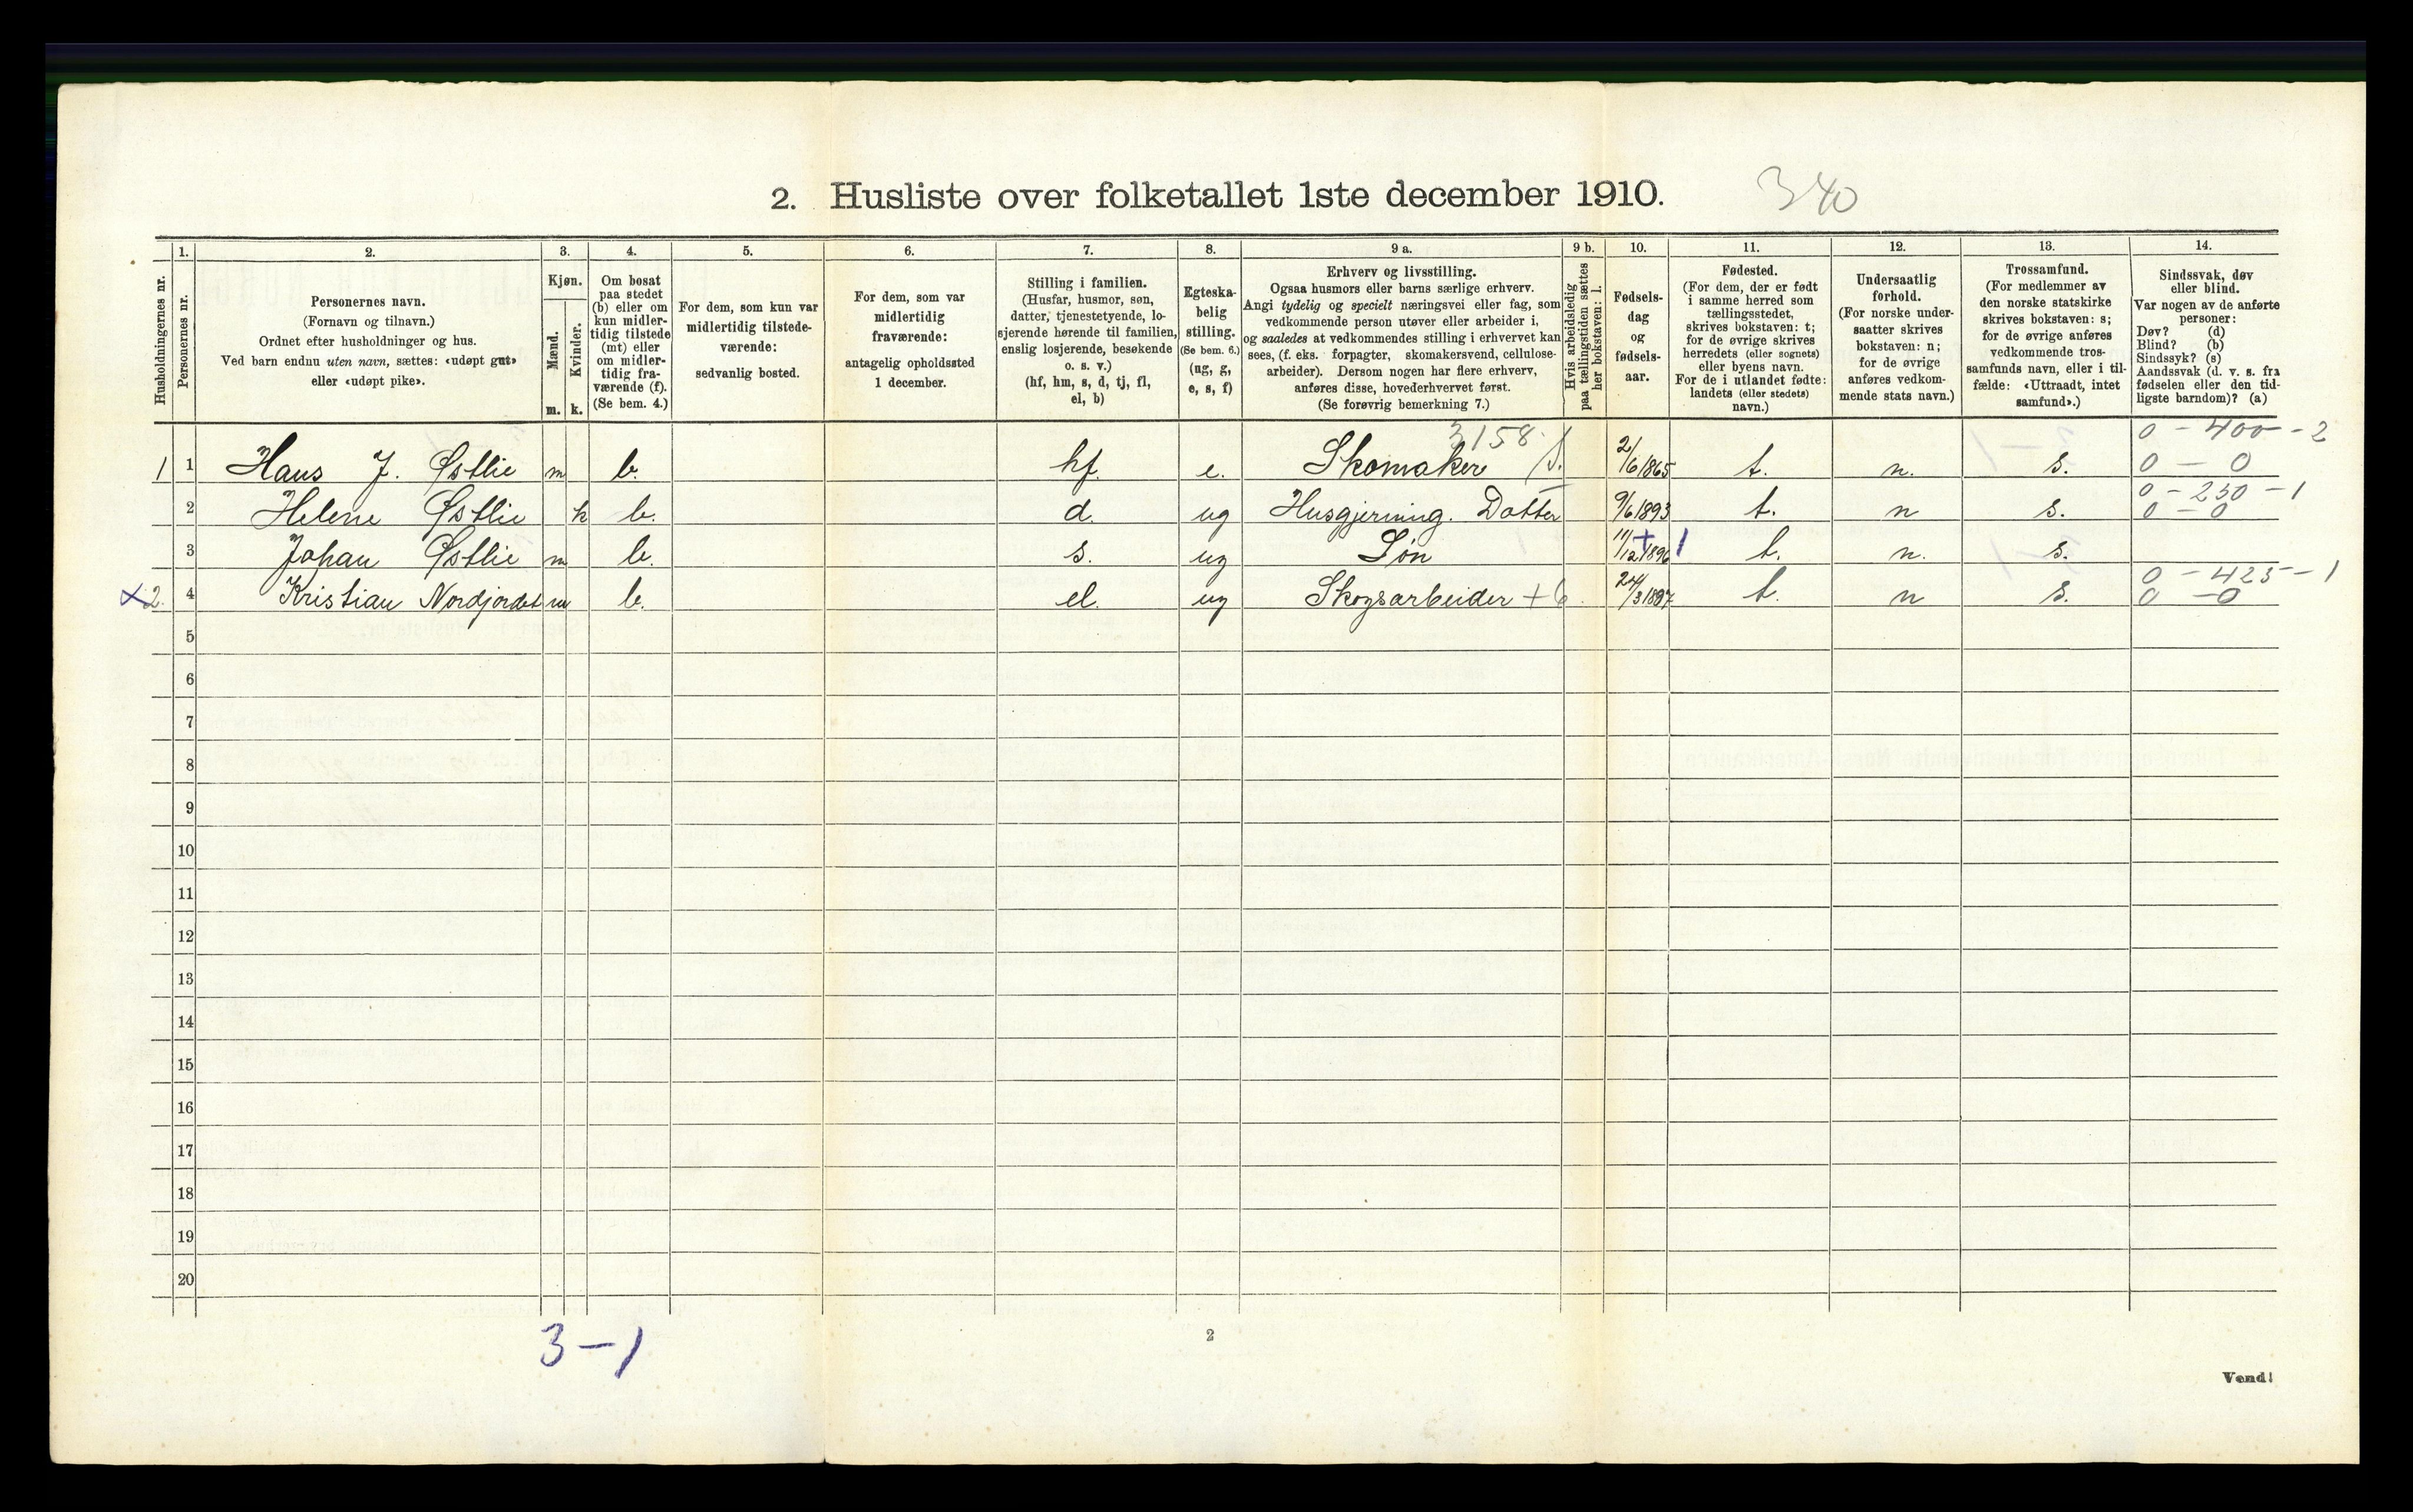 2. Husliste over folketallet 1ste december 1910. 340
Husholdningernes nr.
1.
Personernes nr.
2.
Personernes navn.
(Fornavn og tilnavn.)
Ordnet efter husholdninger og hus.
Ved barn endnu uten navn, sættes: «udøpt gut»
eller «udøpt pike».
3.
Kjøn.
Mænd.
m.
Kvinder.
k.
4.
Om bosat
paa stedet
(b) eller om
kun midler-
tidig tilstede
(mt) eller
om midler-
tidig fra-
værende (f).
(Se bem. 4.)
5.
For dem, som kun var
midlertidig tilstede-
værende:
sedvanlig bosted.
6.
For dem, som var
midlertidig
fraværende:
antagelig opholdssted
1 december.
7.
Stilling i familien.
(Husfar, husmor, søn,
datter, tjenestetyende, lo-
sjerende hørende til familien,
enslig losjerende, besøkende
o. s. v.)
(hf, hm, s, d, tj, fl,
el, b)
8.
Egteska-
belig
stilling.
(Se bem. 6.)
(ug, g,
e, s, f)
9 a.
Erhverv og livsstilling.
Ogsaa husmors eller barns særlige erhverv.
Angi tydelig og specielt næringsvei eller fag, som
vedkommende person utøver eller arbeider i,
og saaledes at vedkommendes stilling i erhvervet kan
sees, (f. eks. forpagter, skomakersvend, cellulose-
arbeider). Dersom nogen har flere erhverv,
anføres disse, hovederhvervet først.
(Se forøvrig bemerkning 7.)
9 b.
Hvis arbeidsledig
paa tællingstiden sættes
her bokstaven: l.
10.
Fødsels-
dag
og
fødsels-
aar.
11.
Fødested.
(For dem, der er født
i samme herred som
tællingsstedet,
skrives bokstaven: t;
for de øvrige skrives
herredets (eller sognets)
eller byens navn.
For de i utlandet fødte:
landets (eller stedets)
navn.)
12.
Undersaatlig
forhold.
(For norske under-
saatter skrives
bokstaven: n;
for de øvrige
anføres vedkom-
mende stats navn.)
13.
Trossamfund.
(For medlemmer av
den norske statskirke
skrives bokstaven: s;
for de øvrige anføres
vedkommende tros-
samfunds navn, eller i til-
fælde: «Uttraadt, intet
samfund».)
14.
Sindssvak, døv
eller blind.
Var nogen av de anførte
personer:
Døv? (d)
Blind? (b)
Sindssyk? (s)
Aandssvak (d. v. s. fra
fødselen eller den tid-
ligste barndom)? (a)
3158 0 - 400 - 2
1 1 Hans J. Østlie m b. hf. e. Skomaker 2/6 1865 t. n. s. 0 - 0
0 - 250 - 1
2 Helene Østlie k b. d. ug Husgjerning. Datter 9/6 1893 t. n s. 0 - 0
3 Johan Østlie m b. s. ug Søn 11/12 1896 1 t. n. s.
0 - 425 - 1
x 2. 4 Kristian Nordjordet m b. el. ug Skogsarbeider + 6 24/3 1887 t. n s. 0 - 0
5
6
7
8
9
10
11
12
13
14
15
16
17
18
19
20
3 - 1
2
Vend!